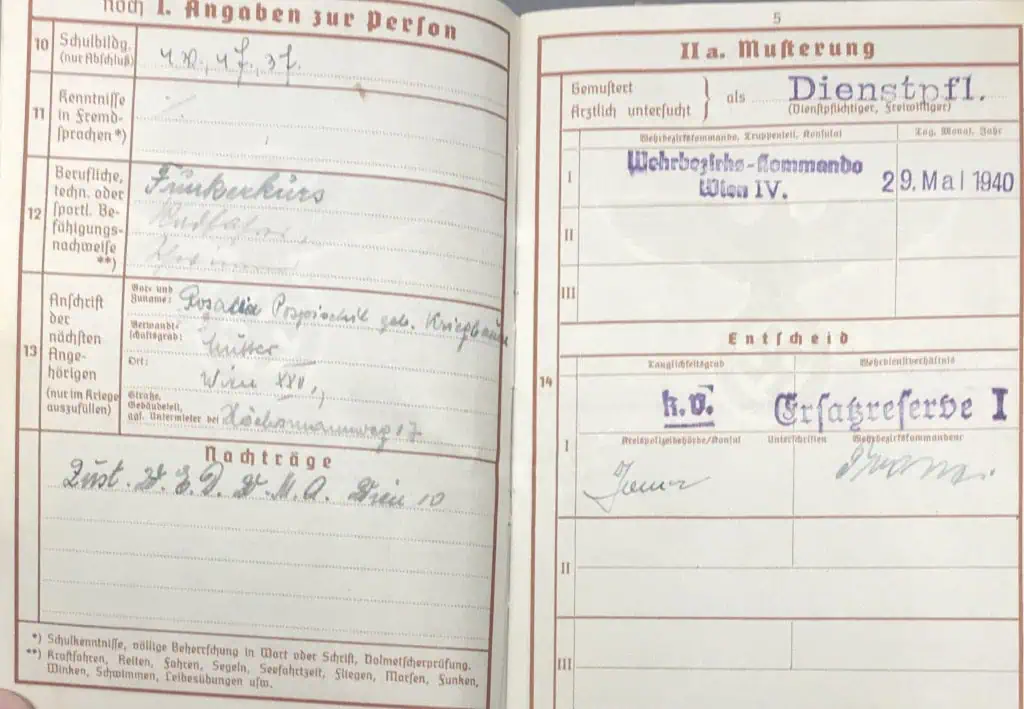 noch I. Angaben zur Person
10 Schulbildg. (nur Abschluß)
11 Kenntnisse in Fremdsprachen *)
12 Berufliche, techn. oder sportl. Befähigungsnachweise **)
Funkerkurs
13 Anschrift der nächsten Angehörigen (nur im Kriege auszufüllen)
Vor- und Zuname: Rosalia Pospischil geb.
Verwandtschaftsgrad: Mutter
Ort: Wien XXV.,
Straße, Gebäudeteil, ggf. Untermieter bei
Nachträge
Zust. W. E. D. W. M. A. Wien 10
*) Schulkenntnisse, völlige Beherrschung in Wort oder Schrift, Dolmetscherprüfung.
**) Kraftfahren, Reiten, Fahren, Segeln, Seefahrtzeit, Fliegen, Morsen, Funken,
Winken, Schwimmen, Leibesübungen usw.
5
II a. Musterung
Gemustert
Ärztlich untersucht } als Dienstpfl.
(Dienstpflichtiger, Freiwilliger)
Wehrbezirkskommando, Truppenteil, Konsulat
Tag, Monat, Jahr
I Wehrbezirks-Kommando
Wien IV. 29. Mai 1940
II
III
Entscheid
14
Tauglichkeitsgrad Wehrdienstverhältnis
k.v. Ersatzreserve I
I Kreispolizeibehörde/Konsul Unterschriften Wehrbezirkskommandeur
II
III